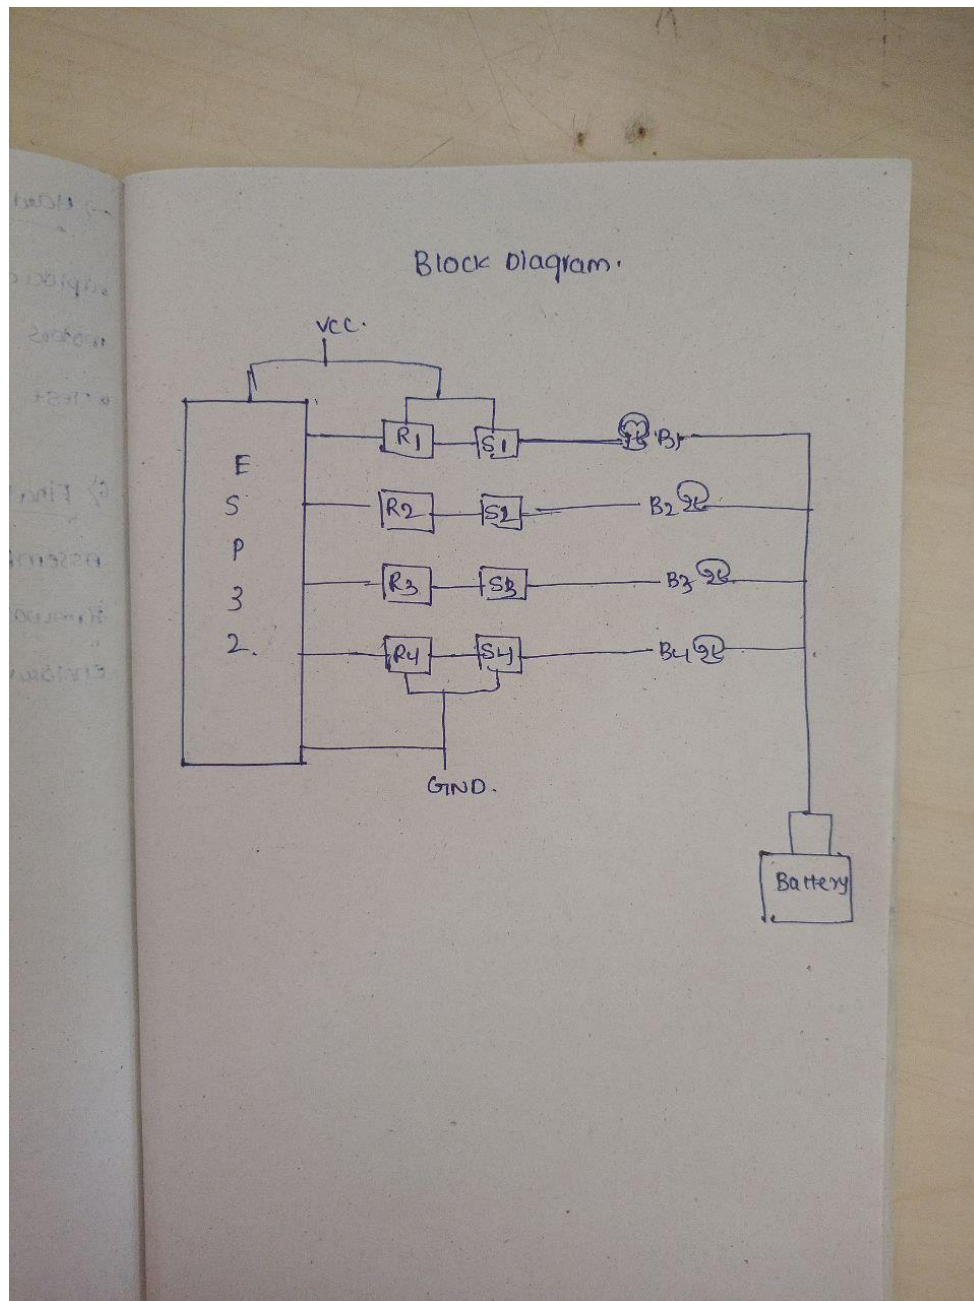 Block Diagram.
VCC.
R1 S1 B1
E
S
P
3
2.
R2 S2 B2
R3 S3 B3
R4 S4 B4
GND.
Battery